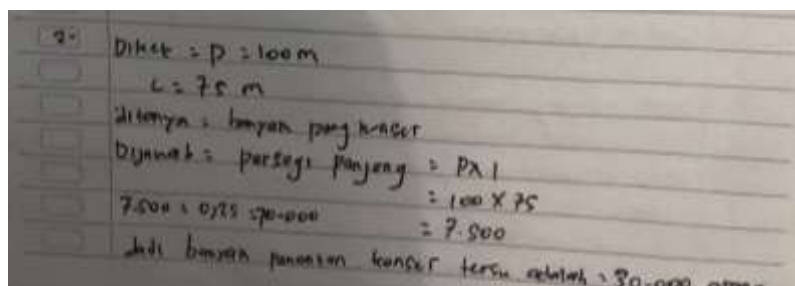 2. Diket = P = 100 m
L = 75 m
ditanya = banyak penonton konser
Dijawab = persegi panjang = P x l
= 100 x 75
7.500 : 0,25 = 30.000 = 7.500
Jadi banyak penonton konser tersu adalah = 30.000 orang